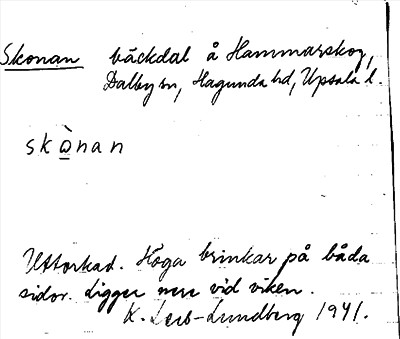 Skonan bäckdal å Hammarskog,
Dalby sn, Hagunda hd, Upsala l.
skò̲nan
Uttorkad. Höga brinkar på båda
sidor. Ligger nere vid viken.
K. Leib-Lundberg 1941.